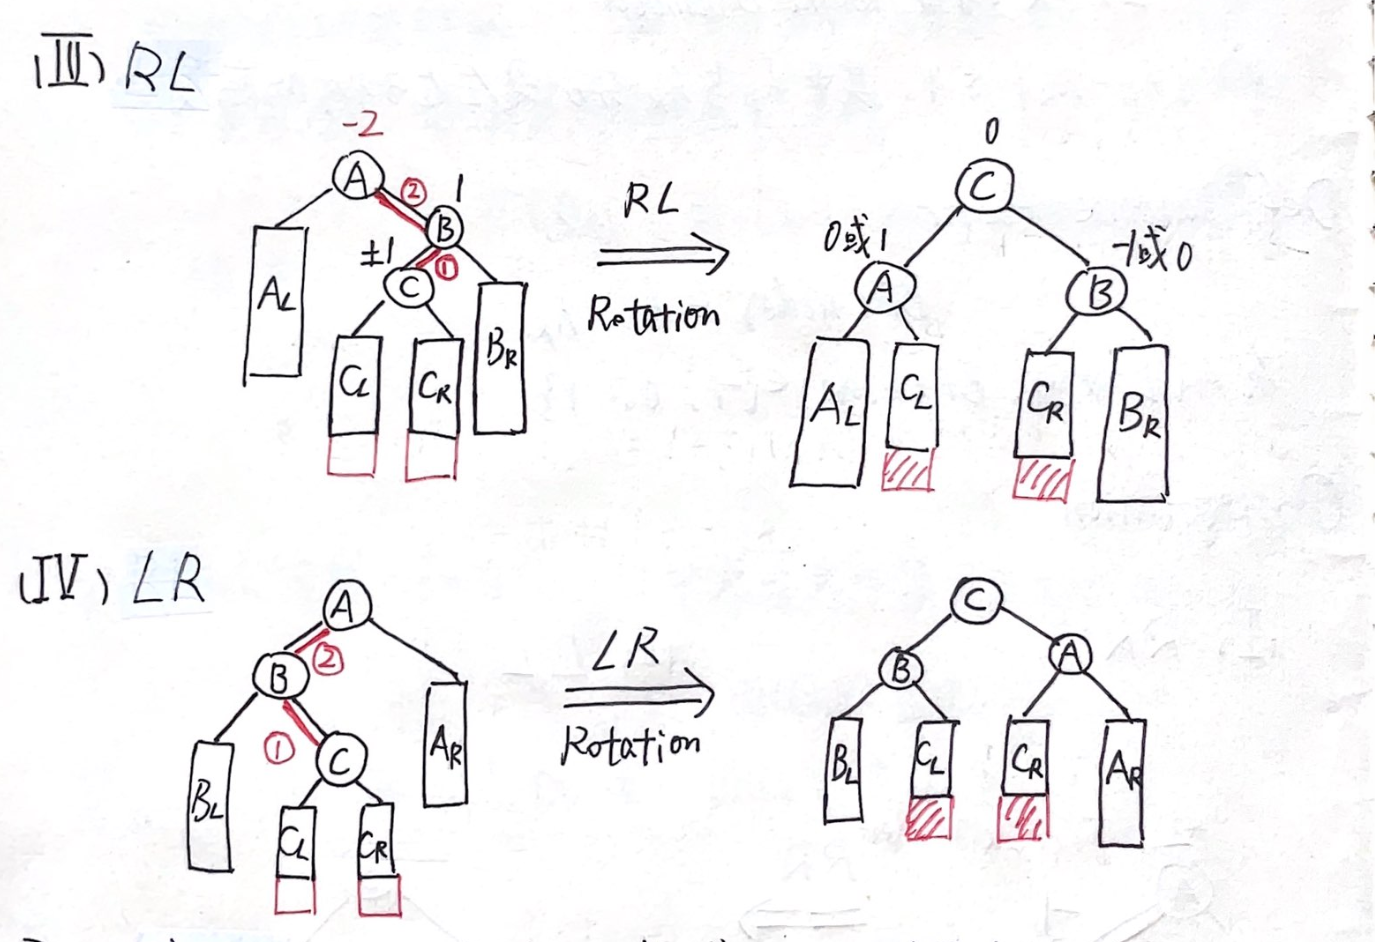 (III) RL
-2
A
② 1
B
±1 ①
C
AL
CL CR BR
RL
Rotation
0
C
0或1 -1或0
A B
AL CL CR BR
(IV) LR
A
②
B
① C
AR
BL
CL CR
LR
Rotation
C
B A
BL CL CR AR